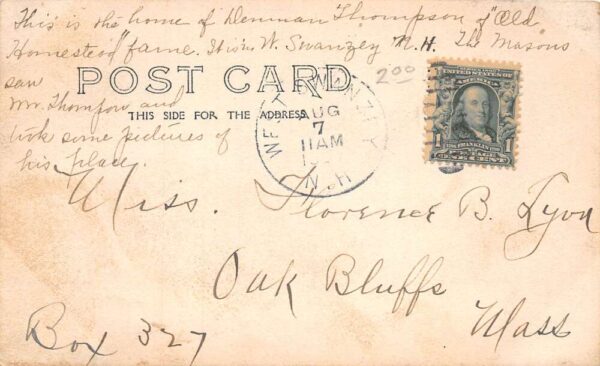 This is the home of Denman Thompson of "Old
Homestead" fame. It is in W. Swanzey N.H. The Masons
saw
Mr. Thompson and
took some pictures of
his place.
2 00
POST CARD
THIS SIDE FOR THE ADDRESS
WEST SWANZEY
AUG
7
11AM
N.H.
UNITED STATES OF
AMERICA
1 FRANKLIN 1
ONE CENT
Miss. Florence B. Lyon
Oak Bluffs
Mass
Box 327